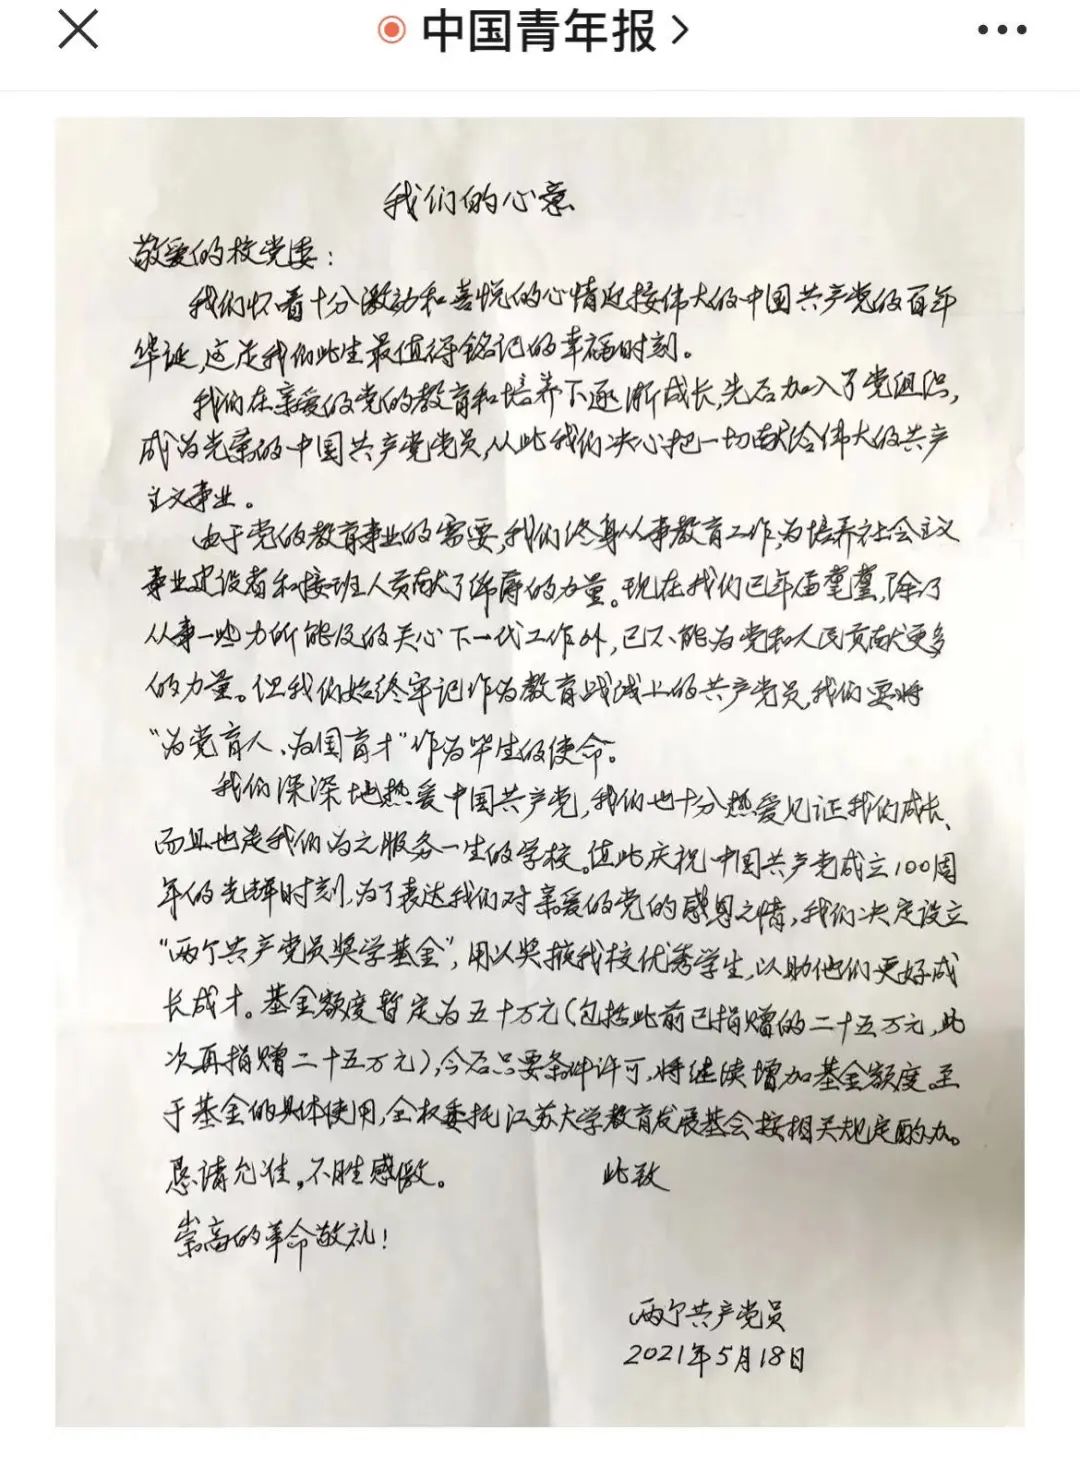 中国青年报
我们的心意
敬爱的校党委：
我们怀着十分激动和喜悦的心情迎接伟大的中国共产党的百年
华诞，这是我们此生最值得铭记的幸福时刻。
我们在亲爱的党的教育和培养下逐渐成长，先后加入了党组织，
成为光荣的中国共产党党员，从此我们决心把一切献给伟大的共产
主义事业。
由于党的教育事业的需要，我们终身从事教育工作，为培养社会主义
事业建设者和接班人贡献了绵薄的力量。现在我们已年届耄耋，除了
从事一些力所能及的关心下一代工作外，已不能为党和人民贡献更多
的力量。但我们始终牢记作为教育战线上的共产党员，我们要将
“为党育人、为国育才”作为毕生的使命。
我们深深地热爱中国共产党，我们也十分热爱见证我们成长、
而且也是我们为之服务一生的学校。值此庆祝中国共产党成立100周
年的光辉时刻，为了表达我们对亲爱的党的感恩之情，我们决定设立
“两个共产党员奖学基金”，用以奖掖我校优秀学生，以助他们更好成
长成才。基金额度暂定为五十万元（包括此前已捐赠的二十五万元，此
次再捐赠二十五万元），今后只要条件许可，将继续增加基金额度。至
于基金的具体使用，全权委托江苏大学教育发展基会按相关规定酌办。
恳请允准，不胜感激。 此致
崇高的革命敬礼！
两个共产党员
2021年5月18日